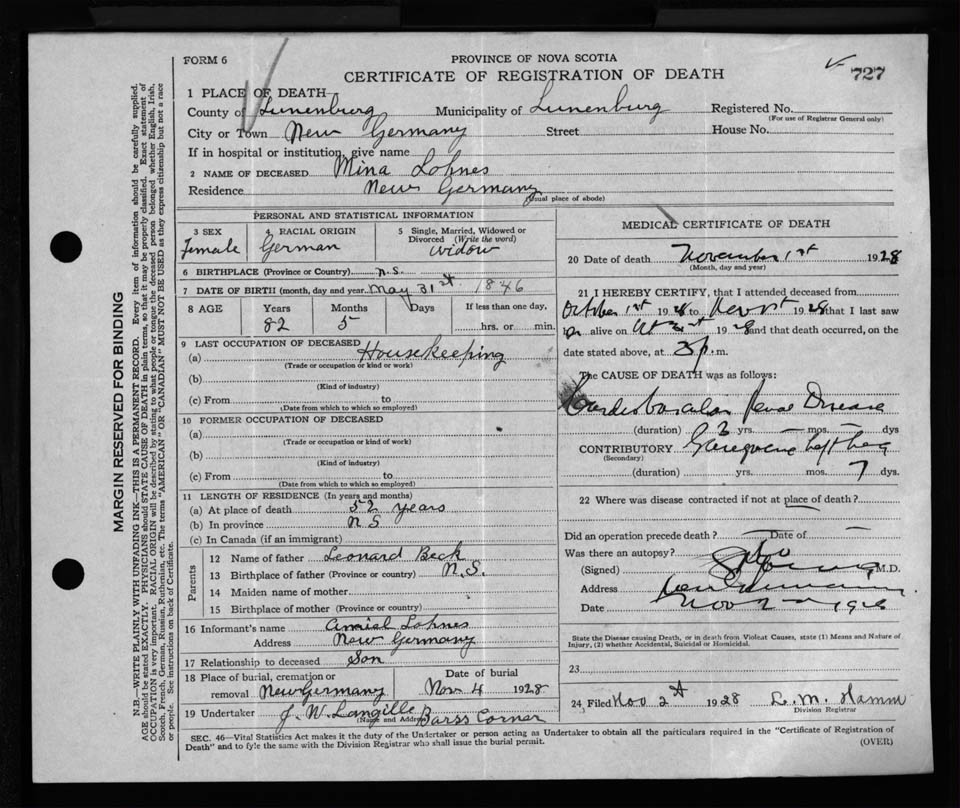 FORM 6
PROVINCE OF NOVA SCOTIA
CERTIFICATE OF REGISTRATION OF DEATH
727
1 PLACE OF DEATH
County of Lunenburg Municipality of Lunenburg Registered No.
(For use of Registrar General only)
City or Town New Germany Street House No.
If in hospital or institution, give name
2 NAME OF DECEASED Mina Lohnes
Residence New Germany
(Usual place of abode)
PERSONAL AND STATISTICAL INFORMATION
3 SEX 4 RACIAL ORIGIN 5 Single, Married, Widowed or Divorced (Write the word)
Female German widow
6 BIRTHPLACE (Province or Country) N.S.
7 DATE OF BIRTH (month, day and year) May 31st 1846
8 AGE Years Months Days If less than one day,
82 5 hrs. or min.
9 LAST OCCUPATION OF DECEASED
(a) Housekeeping
(Trade or occupation or kind or work)
(b)
(Kind of industry)
(c) From to
(Date from which to which so employed)
10 FORMER OCCUPATION OF DECEASED
(a)
(Trade or occupation or kind of work)
(b)
(Kind of industry)
(c) From to
(Date from which to which so employed)
11 LENGTH OF RESIDENCE (In years and months)
(a) At place of death 52 years
(b) In province N S
(c) In Canada (if an immigrant)
Parents
12 Name of father Leonard Beck
13 Birthplace of father (Province or country) N.S.
14 Maiden name of mother
15 Birthplace of mother (Province or country)
16 Informant's name Amiel Lohnes
Address New Germany
17 Relationship to deceased Son
18 Place of burial, cremation or removal New Germany Date of burial Nov 4 1928
19 Undertaker J. W. Langille Barss Corner
(Name and Address)
MEDICAL CERTIFICATE OF DEATH
20 Date of death November 1st 1928
(Month, day and year)
21 I HEREBY CERTIFY, that I attended deceased from
October 1st 1928 to Nov 1st 1928 that I last saw
h alive on 1928 and that death occurred, on
date stated above, at 3 p.m.
The CAUSE OF DEATH was as follows:
Cardiovascular Renal Disease
(duration) 3 yrs. mos. days
CONTRIBUTORY Gangrene left leg
(Secondary)
(duration) yrs. mos. 7 dys.
22 Where was disease contracted if not at place of death?
Did an operation precede death? Date of
Was there an autopsy? No
(Signed) M.D.
Address New Germany
Date Nov 2 1928
State the Disease causing Death, or in death from Violent Causes, state (1) Means and Nature of
Injury, (2) whether Accidental, Suicidal or Homicidal.
23
24 Filed Nov 2 1928 L. M. Hamm
Division Registrar
SEC. 46—Vital Statistics Act makes it the duty of the Undertaker or person acting as Undertaker to obtain all the particulars required in the "Certificate of Registration of
Death" and to fyle the same with the Division Registrar who shall issue the burial permit.
(OVER)
MARGIN RESERVED FOR BINDING
N.B.—WRITE PLAINLY WITH UNFADING INK—THIS IS A PERMANENT RECORD. Every item of information should be carefully supplied.
AGE should be stated EXACTLY. PHYSICIANS should STATE CAUSE OF DEATH in plain terms, so that it may be properly classified. Exact statement of
OCCUPATION is very important. RACIAL ORIGIN will be described by stating to what people or tongue the deceased person belonged whether English, Irish,
Scotch, French, German, Russian, Ruthenian, etc. The terms "AMERICAN" OR "CANADIAN" MUST NOT BE USED as they express citizenship but not a race
or people. See instructions on back of Certificate.